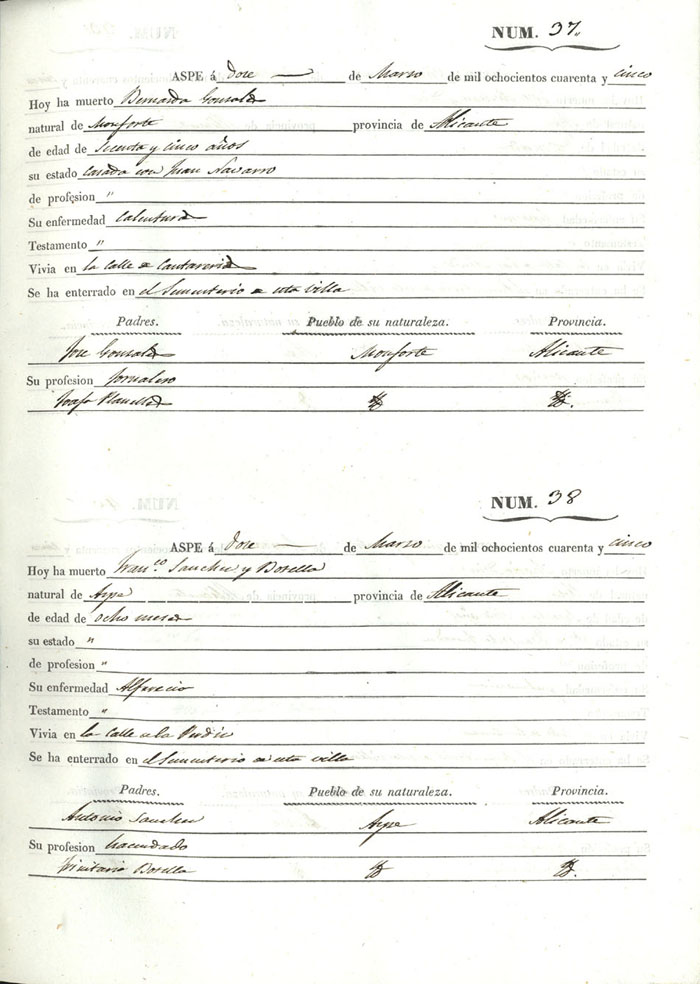 NUM. 37.
ASPE á doce de Marzo de mil ochocientos cuarenta y cinco
Hoy ha muerto Bernarda Gonzalez
natural de Monforte provincia de Alicante
de edad de y cinco años
su estado casada con Juan Navarro
de profesion "
Su enfermedad Calentura
Testamento "
Vivia en la calle de Cantareria
Se ha enterrado en el Sementerio de esta villa
Padres. Pueblo de su naturaleza. Provincia.
Jose Gonzalez Monforte Alicante
Su profesion Jornalero
Josefa Planelles
NUM. 38
ASPE á doce de Marzo de mil ochocientos cuarenta y cinco
Hoy ha muerto Franco Sanchez y Botella
natural de Aspe provincia de Alicante
de edad de ocho meses
su estado "
de profesion "
Su enfermedad Alferecia
Testamento "
Vivia en la calle de la
Se ha enterrado en el Sementerio de esta villa
Padres. Pueblo de su naturaleza. Provincia.
Antonio Sanchez Aspe Alicante
Su profesion hacendado
Trinitaria Botella